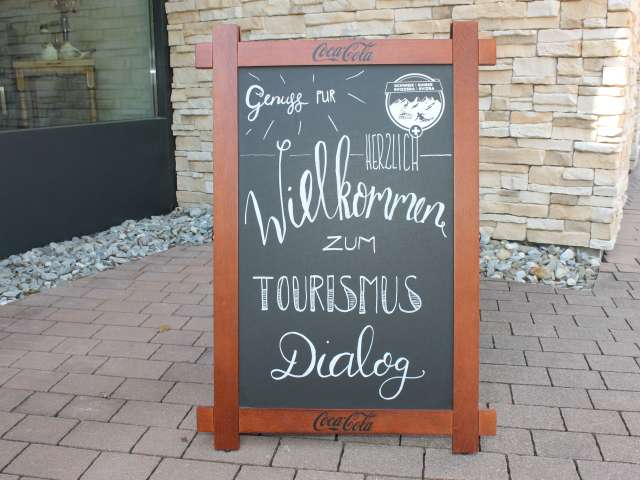 Coca-Cola
Genuss PUR
SCHWEIZ | SUISSE
SVIZZERA | SVIZRA
HERZLICH
Willkommen
ZUM
TOURISMUS
Dialog
Coca-Cola